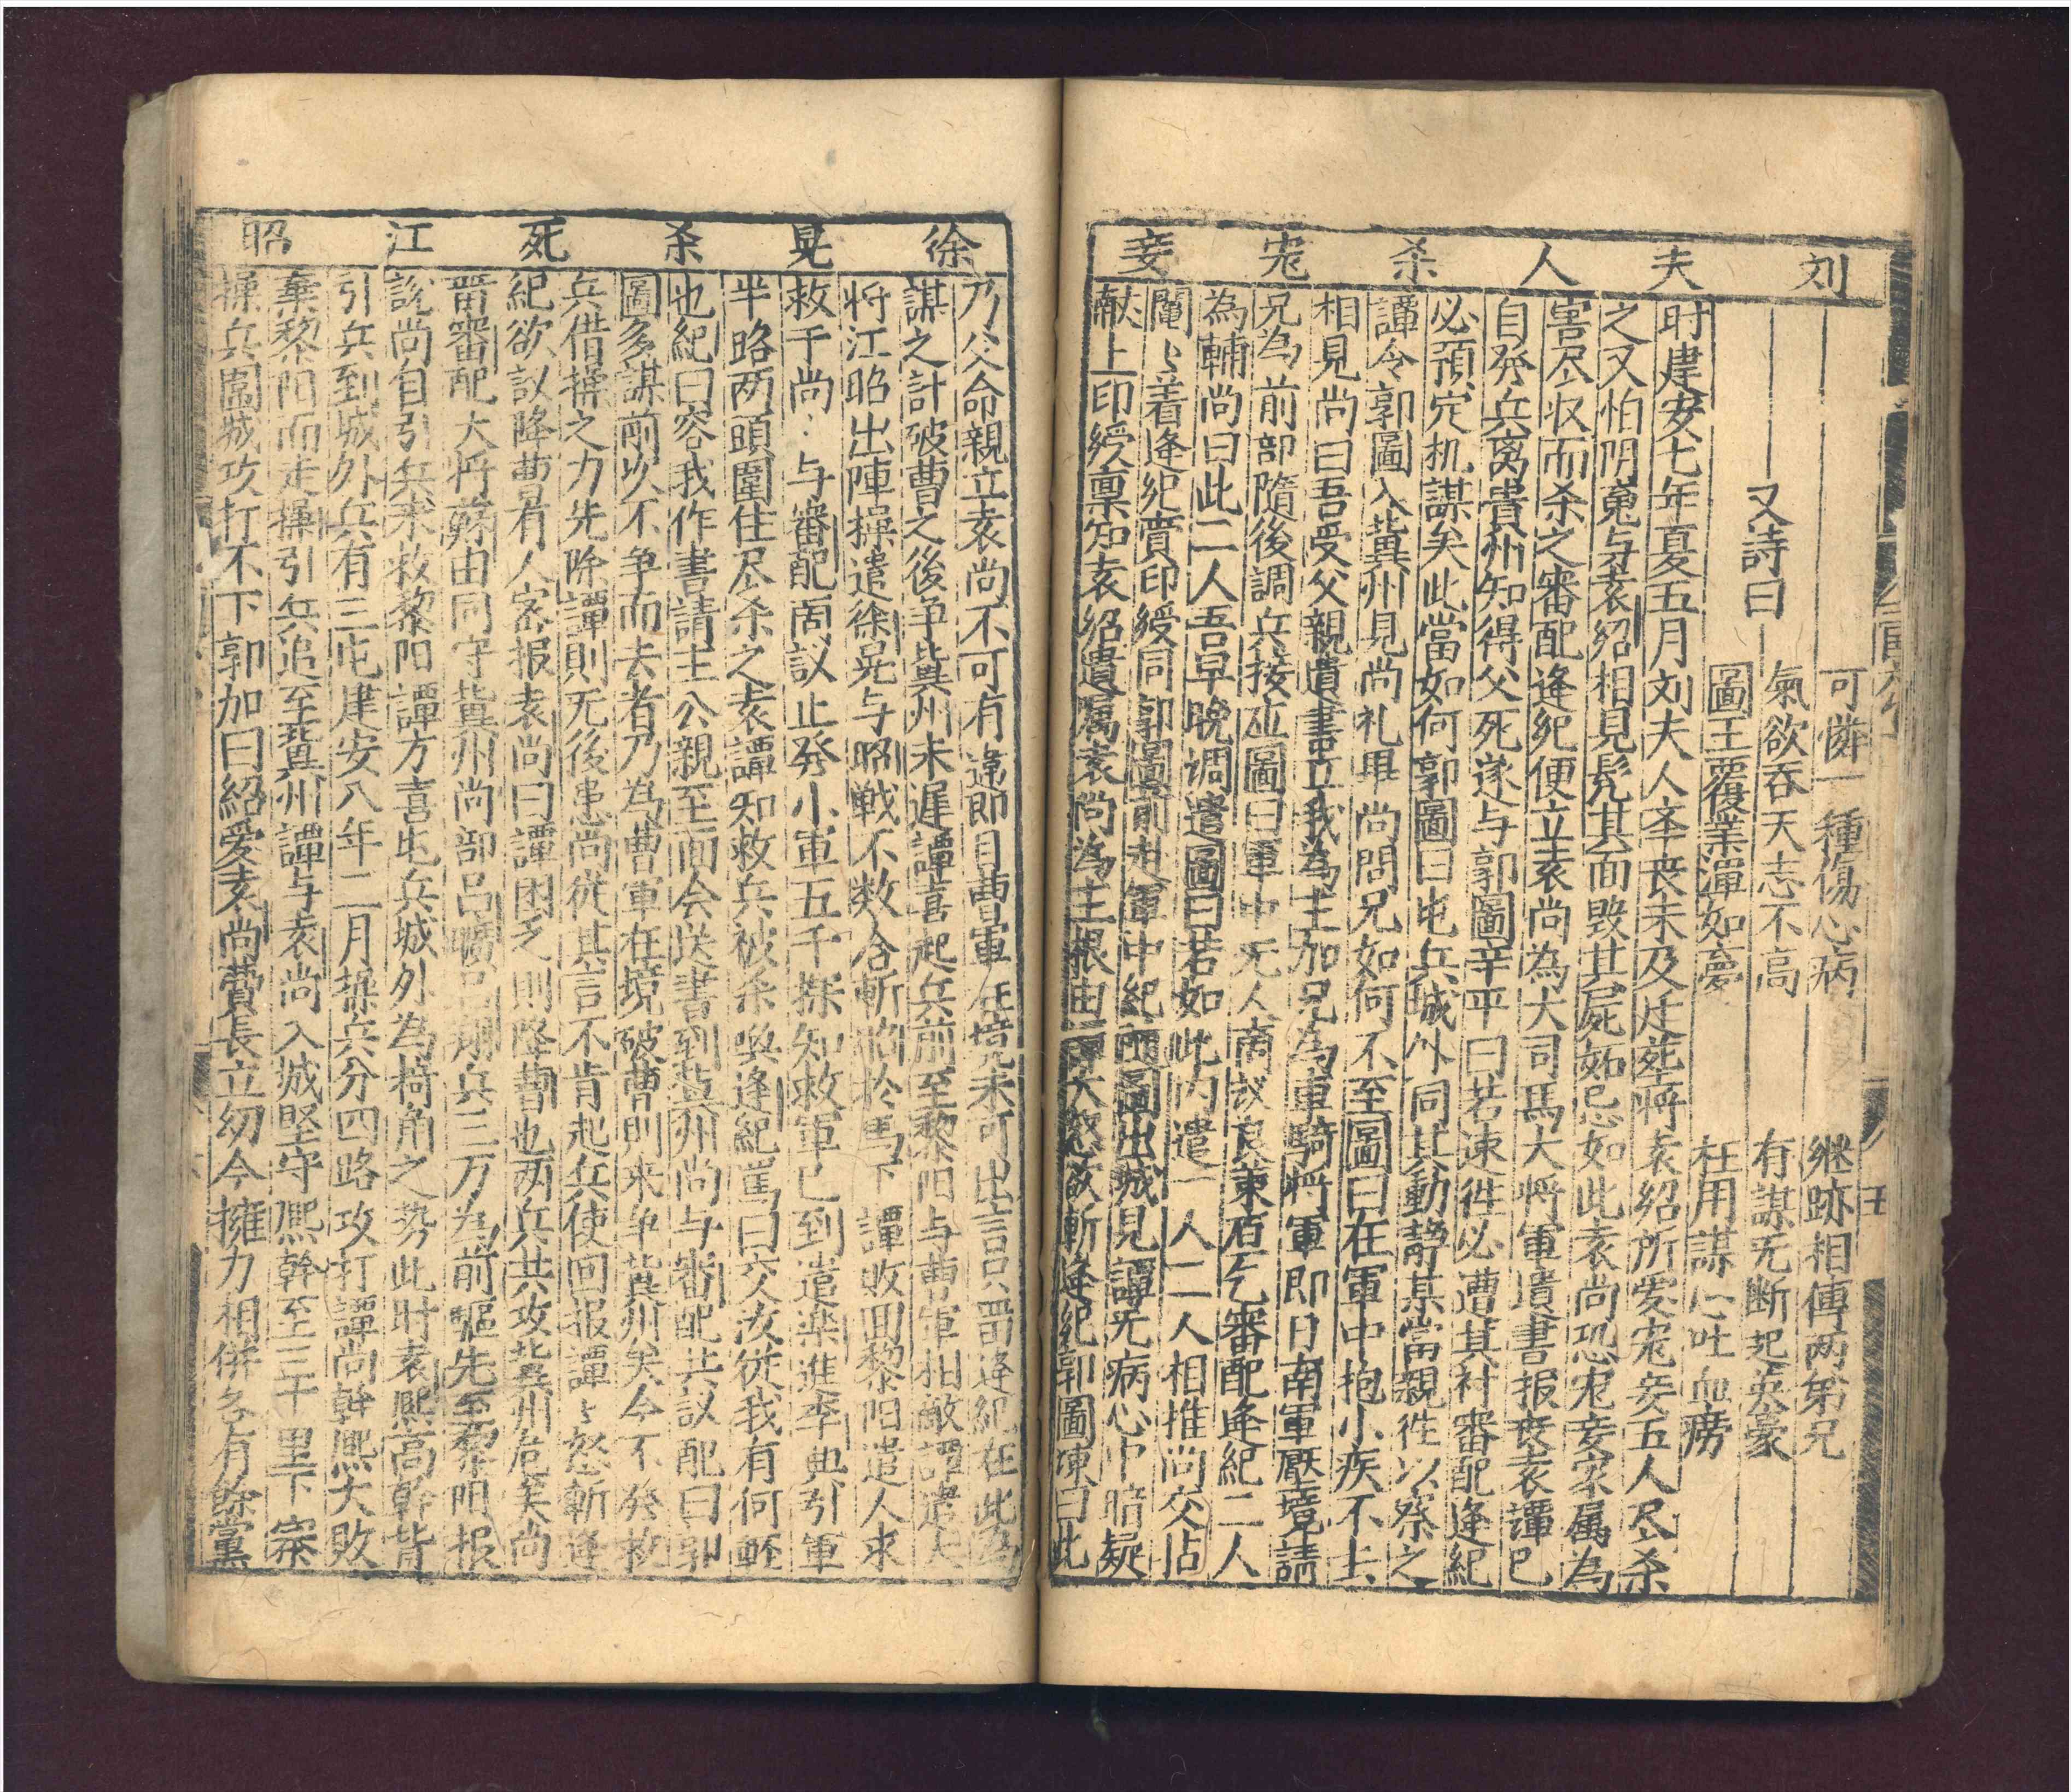 刘夫人杀宠妾
可憐一種傷心病 継跡相傳两弟兄
又詩曰
氣欲吞天志不高 有謀无断起英豪
圖王覆業渾如夢 枉用謀心吐血痨
时建安七年夏五月刘夫人夲丧未及迁塟将袁紹所爱宠妾五人尽杀
之又怕阴䰟与袁紹相見髡其面毀其屍妬忌如此袁尚恐宠妾家属为
害尽収而杀之審配逄纪便立袁尚為大司馬大将軍遺書报丧袁譚已
自発兵离貴州知得父死遂与郭圖辛平曰若速徃必遭其
審配逄紀
必預定机謀矣此當如何郭圖曰屯兵城外同其動静某當親徃以察之
譚令郭圖入冀州見尚礼畢尚問兄如何不至圖曰在軍中抱小疾不去
相見尚曰吾受父親遺書立我為主加兄為車騎将軍即日南軍壓境請
兄為前部隨後調兵接应圖曰軍中无人商议良策
乞審配逄紀二人
為輔尚曰此二人吾早晚调遣圖曰若如此内遣一人二人相推尚交佔
闔〻着逄紀賫印綬同郭圖前赴軍中紀
圖出城見譚无病心中暗疑
献上印綬禀知袁紹遺属袁尚為主根由譚大怒欲斬逄紀郭圖
曰此
徐晃杀死江昭
乃父命親立袁尚不可有違即目曹軍在境未可出言只畱逄紀在此為
謀之計破曹之後争冀州未遲譚喜起兵前至黎阳与曹軍相敵譚遣大
将江昭出陣操遣徐晃与昭戦不数合斬昭於馬下譚敗回黎阳遣人求
救于尚〻与審配商议止発小軍五千探知救軍已到遣楽進李典引軍
半路两頭圍住尽杀之袁譚知救兵被杀喚逄紀罵曰父汝從我有何軽
也紀曰容我作書請主公親至面会送書到冀州尚与審配共议配曰郭
圖多謀前次不争而去者乃為曹軍在境破曹則来争冀州矣今不発救
兵借操之力先除譚則无後患尚從其言不肯起兵使回报譚〻怒斬逄
紀欲议降曹有人密报袁尚曰譚困乏則降曹也两兵共攻冀州危矣尚
畱審配大将蘇由同守冀州尚部呂曠呂翔兵三万為前驅先至黎阳报
說尚自引兵来救黎阳譚方喜屯兵城外為椅角之势此时袁熙高幹皆
引兵到城外兵有三屯建安八年二月操兵分四路攻打譚尚幹熙大敗
棄黎阳而走操引兵追至冀州譚与袁尚入城堅守熙幹至三十里下寨
操兵圍城攻打不下郭加曰紹爱袁尚費長立幼今擁力相併各有餘黨